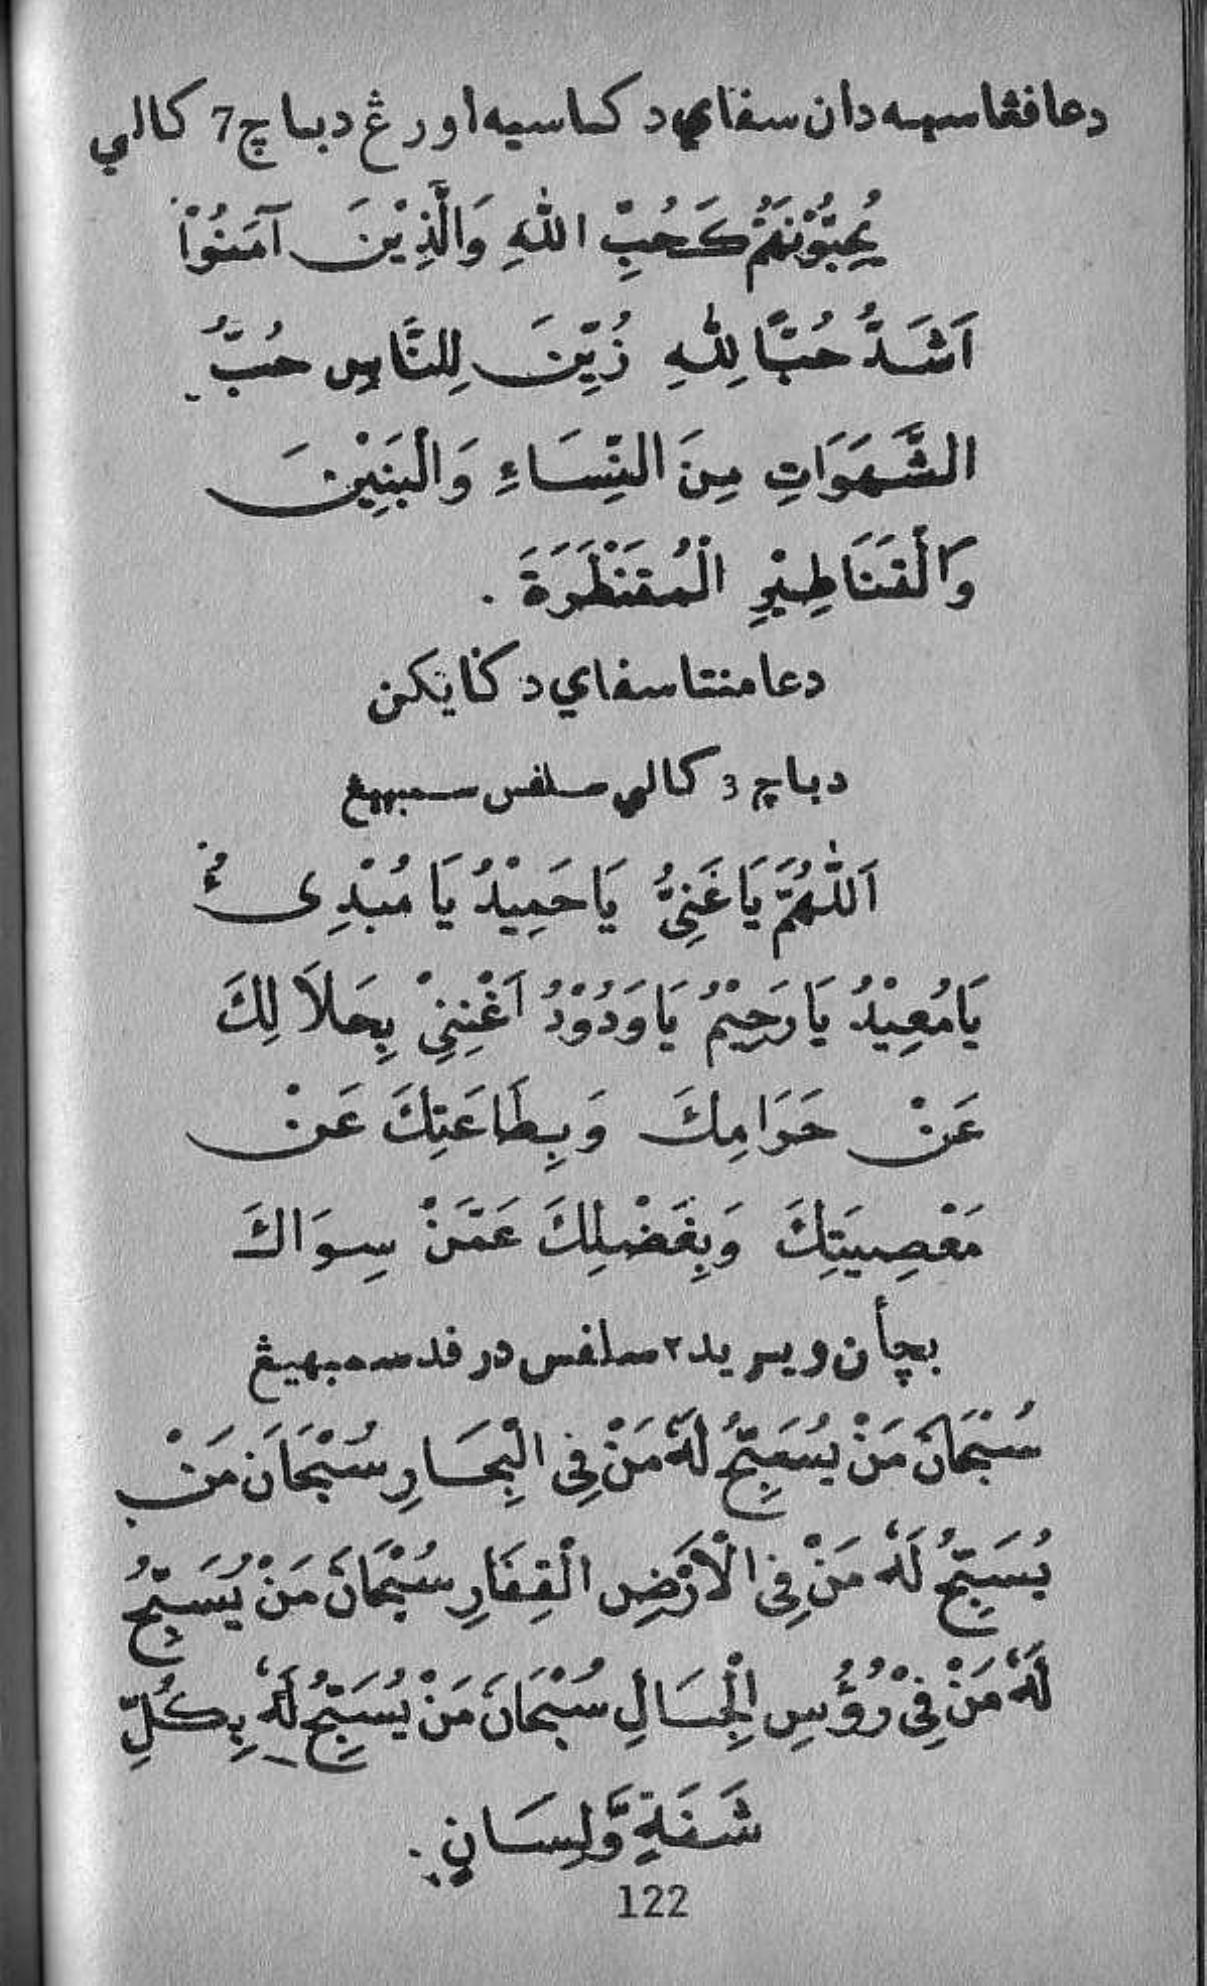 دعا فڠاسيه دان سفاي دكاسيه اورڠ دباچ 7 كالي
يُحِبُّوْنَهُمْ كَحُبِّ اللهِ وَالَّذِيْنَ آمَنُوْا
اَشَدُّ حُبًّا لِلّٰهِ زُيِّنَ لِلنَّاسِ حُبُّ
الشَّهَوَاتِ مِنَ النِّسَاءِ وَالْبَنِيْنَ
وَالْقَنَاطِيْرِ الْمُقَنْطَرَةَ .
دعا منتا سفاي دكنايكن
دباچ 3 كالي سلفس سمبهيڠ
اَللّٰهُمَّ يَا غَنِيُّ يَا حَمِيْدُ يَا مُبْدِئُ
يَا مُعِيْدُ يَا رَحِيْمُ يَا وَدُوْدُ اَغْنِنِيْ بِحَلَا لِكَ
عَنْ حَرَامِكَ وَبِطَاعَتِكَ عَنْ
مَعْصِيَتِكَ وَبِفَضْلِكَ عَمَّنْ سِوَاكَ
بچأن ويريد٢ سلفس درفد سمبهيڠ
سُبْحَانَ مَنْ يُسَبِّحُ لَهٗ مَنْ فِى الْبِحَارِ سُبْحَانَ مَنْ
يُسَبِّحُ لَهٗ مَنْ فِى الْاَرْضِ الْقِفَارِ سُبْحَانَ مَنْ يُسَبِّحُ
لَهٗ مَنْ فِيْ رُؤُسِ الْجِبَالِ سُبْحَانَ مَنْ يُسَبِّحُ لَهٗ بِكُلِّ
شَفَةٍ وَّلِسَانٍ .
122